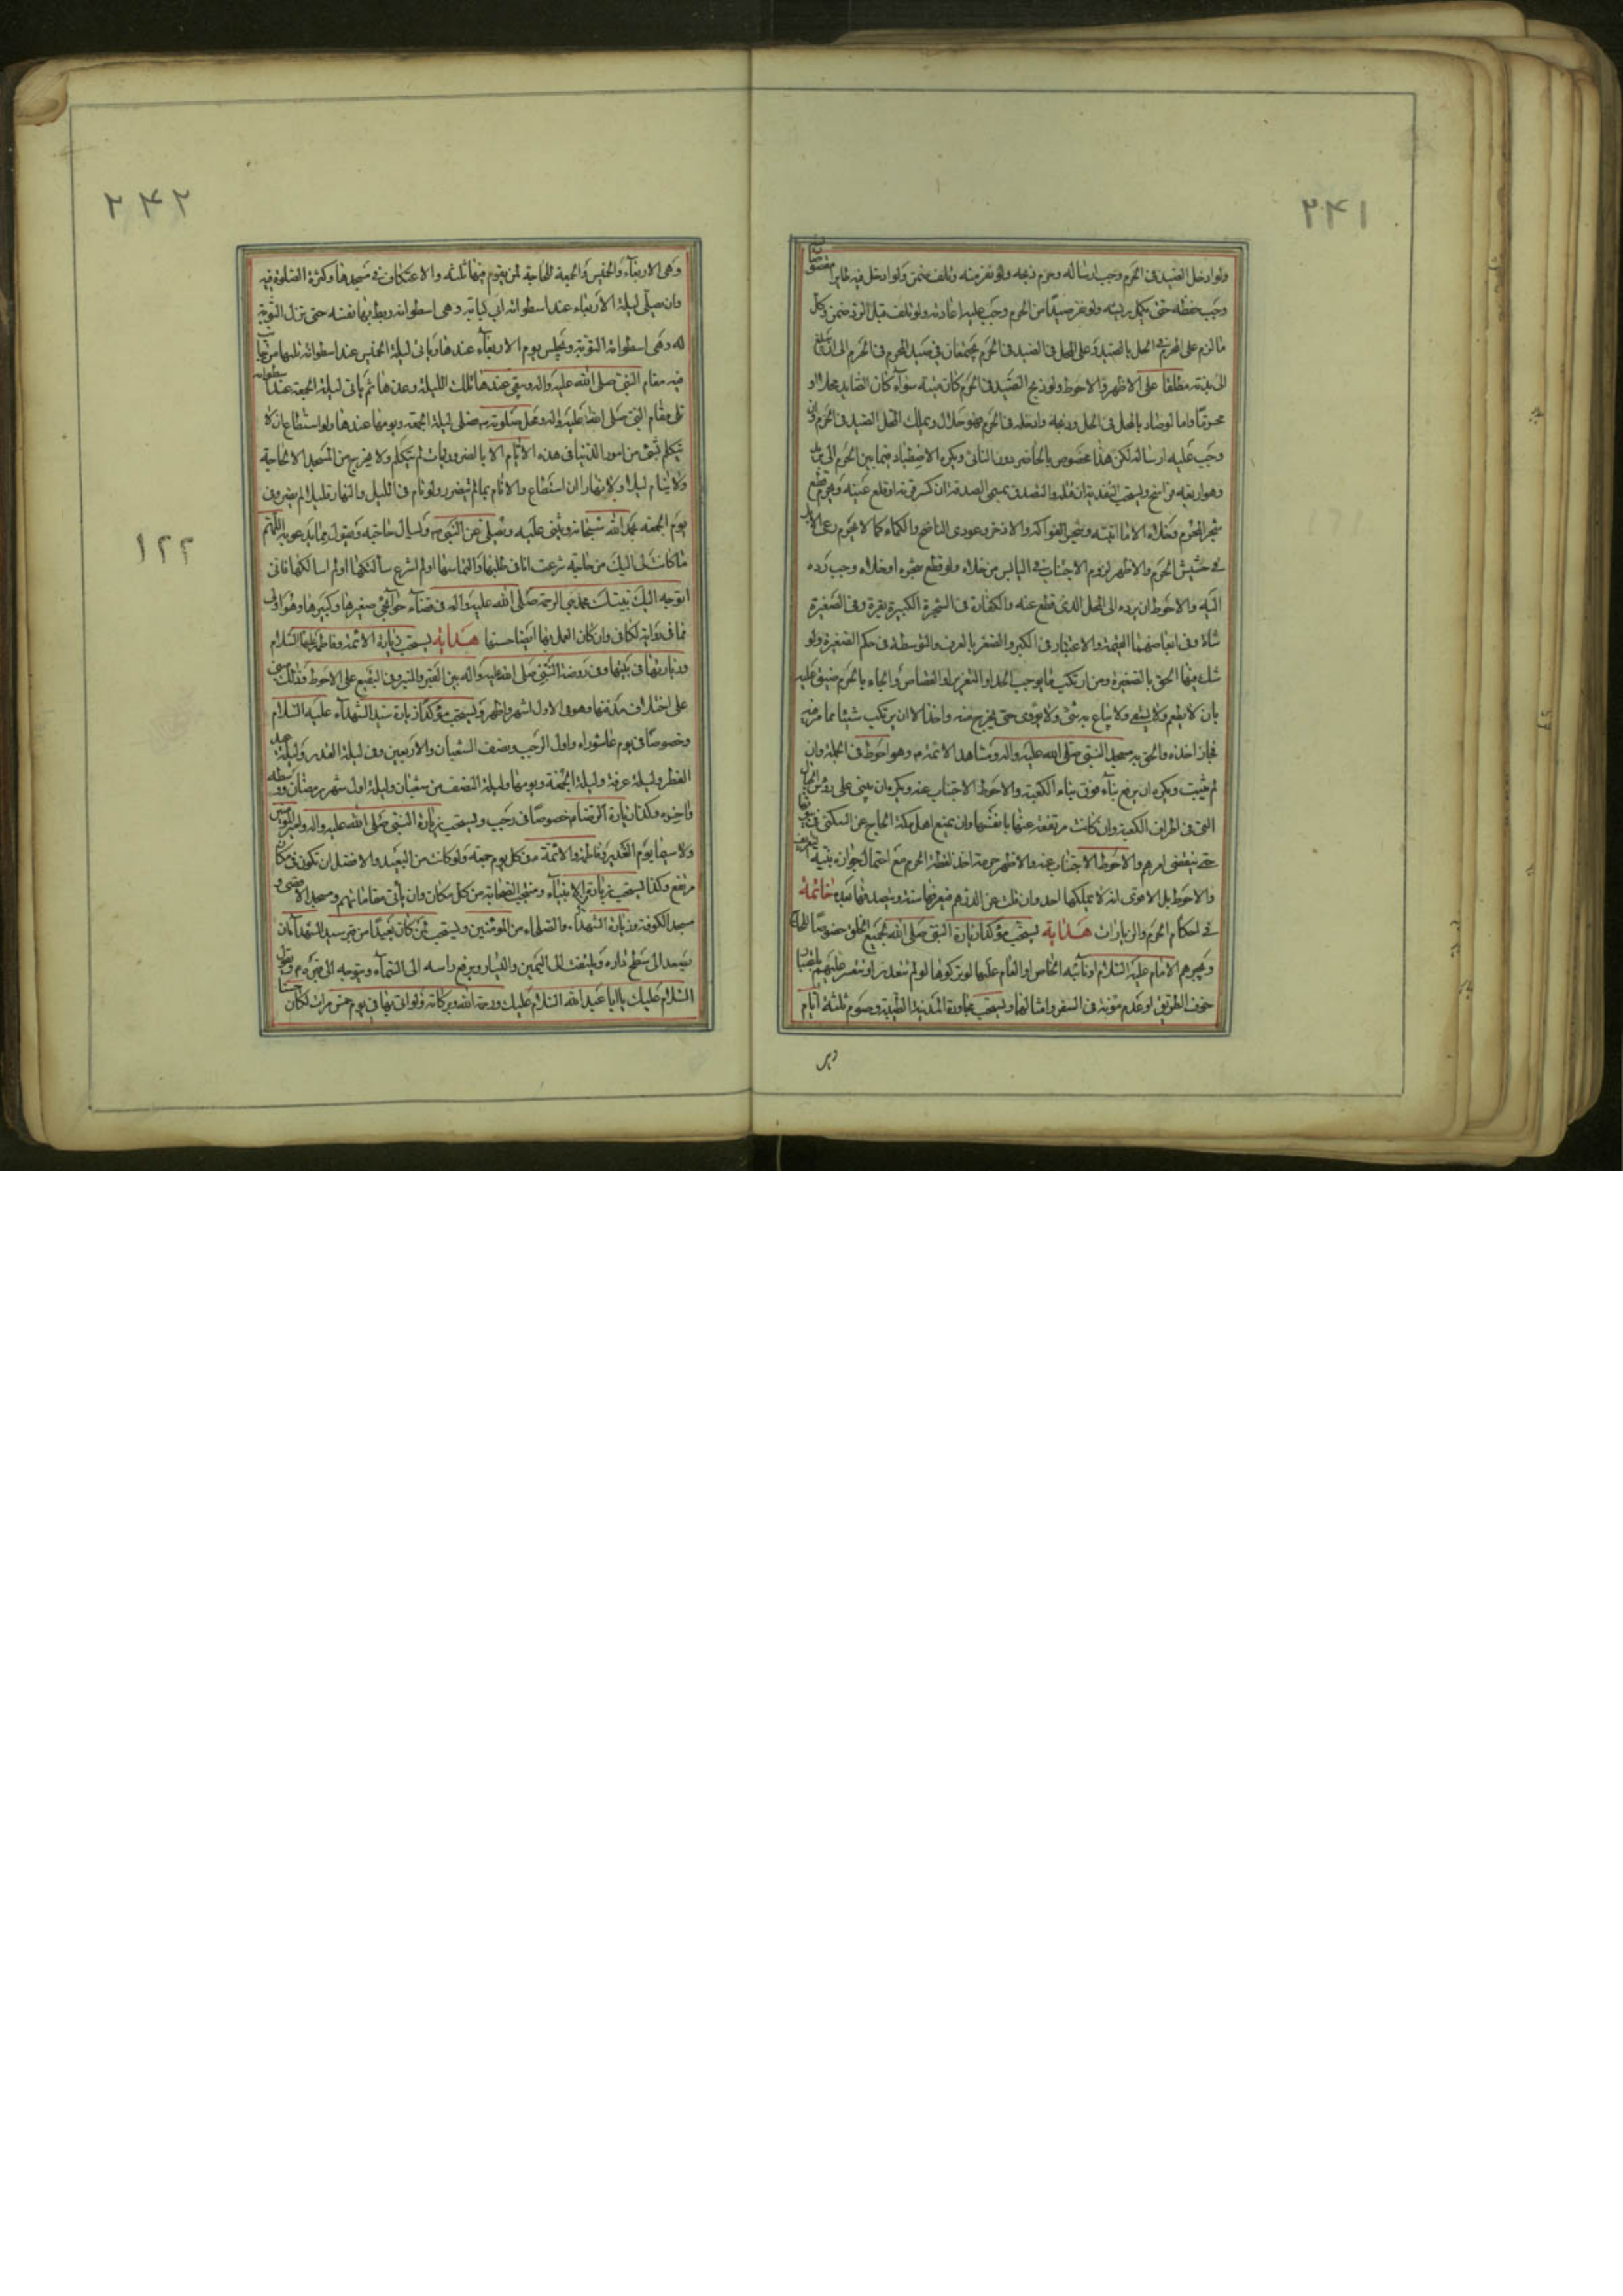 ۲۴۱
ولو ادخل الصيد فى الحرم وجب ارساله وحرم ذبحه ولو نفر منه وتلف ضمن ولو ادخل فيه طايرا مقصوصا
وجب حفظه حتى يكمل ريشه ولو نفر صيدا من الحرم وجب عليه اعادته ولو تلف قبل الرد ضمن وكل
ما لزم على المحرم فى الحل بالصيد وعلى المحل فى الصيد فى الحرم يجتمعان فى صيد المحرم فى الحرم الى ان يبلغ
الى بدنة مطلقا على الاظهر والاحوط ولو ذبح الصيد فى الحرم كان ميتة سواء كان الصايد محلا او
محرما واما لو صاد بالمحل فى الحل وذبحه وادخله فى الحرم فهو حلال ويملك المحل الصيد فى الحرم
وجب عليه ارساله لكن هذا مخصوص بالحاضر دون النائى ويكره الاصطياد فيما بين الحرم الى بريد
وهو اربعة فراسخ ويستحب الفدية ان قتله والتصدق بمسمى الصدقة ان كسر قرنه او قلع عينه ويحرم قطع
شجر الحرم وخلاه الا ما انبته وشجر الفواكه والاذخر وعودى الناضح والكماء كما لا يحرم رعى الابل
فى حشيش الحرم والاظهر لزوم الاجتناب فى اليابس من خلاه ولو قطع شجره او خلاه وجب رده
اليه والاحوط ان يرده الى المحل الذى قطع عنه والكفارة فى الشجرة الكبيرة بقرة وفى الصغيرة
شاة وفى ابعاضهما القيمة والاعتبار فى الكبر والصغر بالعرف والمتوسطة فى حكم الصغيرة ولو
شك فيها الحق بالصغيرة ومن ارتكب ما يوجب الحد او التعزير او القصاص والجاء بالحرم ضيق عليه
بان لا يطعم ولا يسقى ولا يباع به شئ ولا يؤوى حتى يخرج منه واخذ الا ان يرتكب شيئا مما مر فيه
فجاز اخذه والحق به مسجد النبى صلى الله عليه واله ومشاهد الائمة م وهو احوط فى الجملة وان
لم يثبت ويكره ان يرفع بناء فوق بناء الكعبة والاحوط الاجتناب عنه ويكره ان يبنى على رؤس الجبال
التى فى اطراف الكعبة وان كانت مرتفعة عنها بانفسها وان يمنع اهل مكة الحاج عن السكنى فى بيوتها
حتى ينقضى امرهم والاحوط الاجتناب عنه والاظهر حرمة اخذ لقطة الحرم مع احتمال جوازه بنية التعريف
والاحوط بل الاقوى انه لا يملكها احد وان قلت عن الدرهم فيعرفها سنة ويتصدق بها بعده خاتمة
فى احكام الحرم والزيارات هداية يستحب مؤكدا زيارة النبى صلى الله لجميع الخلق خصوصا للحاج
ويجبرهم الامام عليه السلام او نائبه الخاص او العام عليها لو تركوها لو لم تتعذر او تتعسر عليهم
خوف الطريق او عدم مؤنة فى السفر وامثالها ويستحب مجاورة المدينة الطيبة وصوم ثلثة ايام
وهى
۲۴۲
وهى الاربعاء والخميس والجمعة للحاجة لمن يقوم فيها ثلثه والاعتكاف فى مسجدها وكثرة الصلوة فيه
وان صلى ليلة الاربعاء عند اسطوانة ابى لبابة وهى اسطوانة ربط بها نفسه حتى نزل التوبة
له وهى اسطوانة التوبة ويجلس يوم الاربعاء عندها وياتى ليلة الخميس عند اسطوانة تليها
فيه مقام النبى صلى الله عليه واله ويبقى عندها تلك الليلة وغدها ثم ياتى ليلة الجمعة عند اسطوانة
تلى مقام النبى صلى الله عليه واله ومحل صلوته ويصلى ليلة الجمعة ويومها عندها ولو استطاع ان لا
يتكلم بشئ من امور الدنيا فى هذه الايام الا بالضروريات لم يتكلم ولا يخرج من المسجد الا لحاجة
ولا ينام ليلا ولا نهارا ان استطاع والا نام بما لم يتضرر ولو نام فى الليل والنهار قليلا لم يضر وفى
يوم الجمعة يحمد الله سبحانه ويثنى عليه ويصلى على النبى ص ويسال حاجته ويقول مما يدعو به اللهم
ما كانت لى اليك من حاجة شرعت انا فى طلبها والتماسها او لم اشرع سالتكها او لم اسالكها فانى
اتوجه اليك بنبيك محمد نبى الرحمة صلى الله عليه واله فى قضاء حوائجى صغيرها وكبيرها وهو اولى
مما فى رواية الكافى وان كان العمل بها ايضا حسنا هداية يستحب زيارة الائمة وفاطمة عليها السلام
وزيارتها فى بيتها وفى روضة النبى صلى الله عليه واله بين القبر والمنبر وفى البقيع على الاحوط وذلك مبنى
على اختلاف مدفنها وهو فى الاول اشهر واظهر ويستحب مؤكدا زيارة سيد الشهداء عليه السلام
وخصوصا فى يوم عاشوراء واول الرجب ونصف الشعبان والاربعين وفى ليلة القدر وليلة عيد
الفطر وليلة عرفة وليلة الجمعة ويومها وليلة النصف من شعبان وليلة اول شهر رمضان ووسطه
واخره وكذا زيارة الرضا م خصوصا فى رجب ويستحب زيارة النبى صلى الله عليه واله وامير المؤمنين
ولا سيما يوم الغدير وفاطمة والائمة م فى كل يوم جمعة ولو كانت من البعيد والافضل ان تكون فى مكان
مرتفع وكذا يستحب زيارة الانبياء ومنتجب الصحابة من كل مكان وان ياتى مقاماتهم ومسجد الاقصى و
مسجد الكوفة وزيارة الشهداء والصلحاء من المؤمنين ويستحب لمن كان بعيدا من قبر سيد الشهداء ان
يصعد الى سطح داره ويلتفت الى اليمين واليسار ويرفع راسه الى السماء ويتوجه الى قبره م ويقول
السلام عليك يا ابا عبد الله السلام عليك ورحمة الله وبركاته ولو اتى بها فى يوم خمس مرات لكان حسنا
۱۲۲